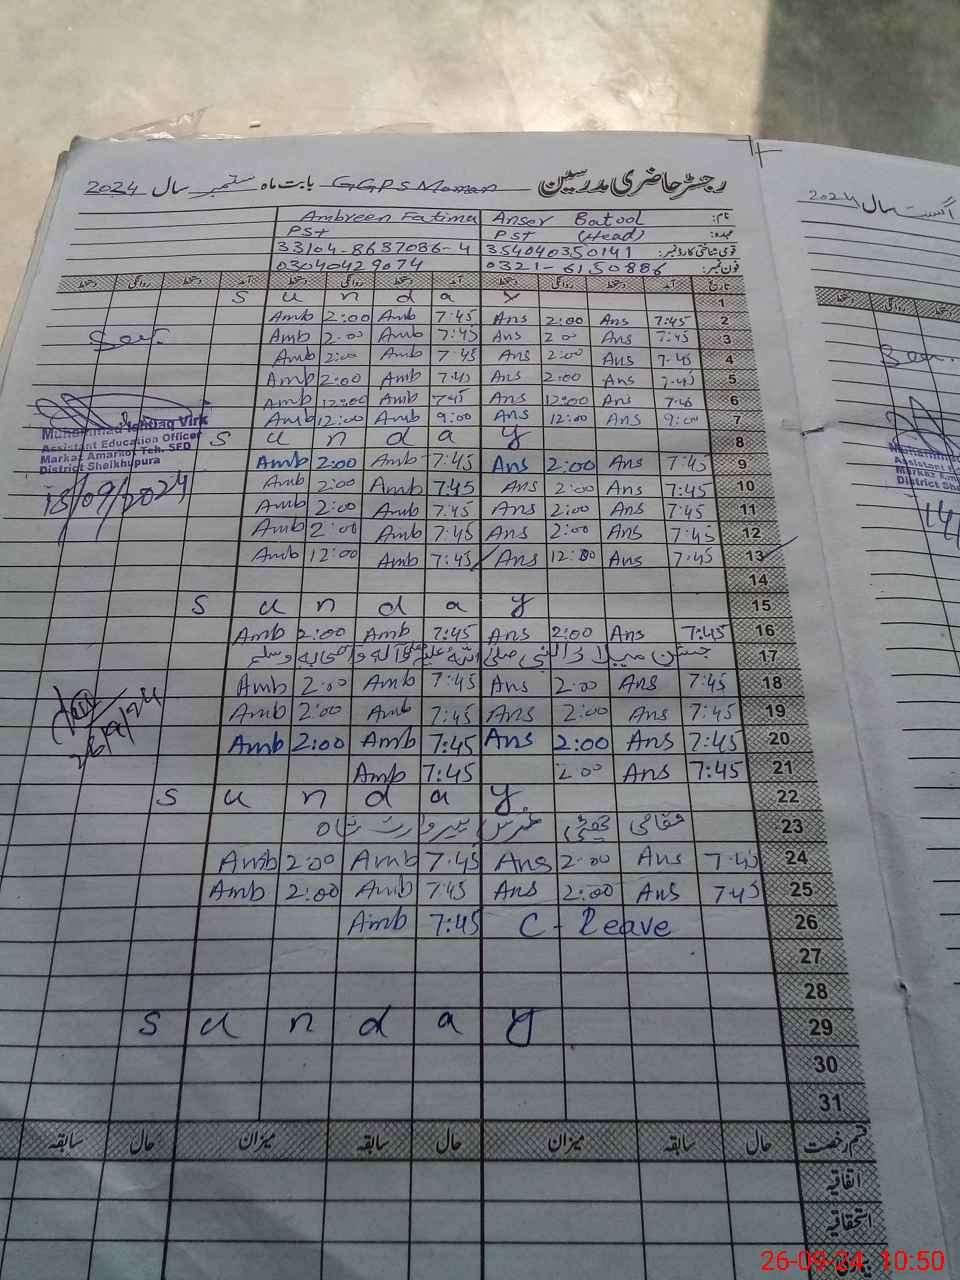 رجسٹر حاضری مدرسین GGPS Moman بابت ماہ ستمبر سال 2024
نام: Anser Batool Ambreen Fatima
عہدہ: PST (Head) PST
قومی شناختی کارڈ نمبر: 354040350141 33104-8637086-4
فون نمبر: 0321-6150886 03040429074
تاریخ آمد دستخط روانگی دستخط آمد دستخط روانگی دستخط آمد دستخط روانگی دستخط
1 Sunday
Amb 2:00 Amb 7:45 Ans 2:00 Ans 7:45 2
Amb 2:00 Amb 7:45 Ans 2:00 Ans 7:45 3
Amb 2:00 Amb 7:45 Ans 2:00 Ans 7:45 4
Amb 2:00 Amb 7:45 Ans 2:00 Ans 7:45 5
Amb 12:00 Amb 7:45 Ans 12:00 Ans 7:45 6
Amb 12:00 Amb 9:00 Ans 12:00 Ans 9:00 7
Sunday 8
Amb 2:00 Amb 7:45 Ans 2:00 Ans 7:45 9
Amb 2:00 Amb 7:45 Ans 2:00 Ans 7:45 10
Amb 2:00 Amb 7:45 Ans 2:00 Ans 7:45 11
Amb 2:00 Amb 7:45 Ans 2:00 Ans 7:45 12
Amb 12:00 Amb 7:45 Ans 12:00 Ans 7:45 13
14
Sunday 15
Amb 2:00 Amb 7:45 Ans 2:00 Ans 7:45 16
17 جشن میلاد النبی صلی اللہ علیہ وآلہ واصحابہ وسلم
Amb 2:00 Amb 7:45 Ans 2:00 Ans 7:45 18
Amb 2:00 Amb 7:45 Ans 2:00 Ans 7:45 19
Amb 2:00 Amb 7:45 Ans 2:00 Ans 7:45 20
Amb 7:45 2:00 Ans 7:45 21
Sunday 22
23 مقامی چھٹی عرس پیر وارث شاہ
Amb 2:00 Amb 7:45 Ans 2:00 Ans 7:45 24
Amb 2:00 Amb 7:45 Ans 2:00 Ans 7:45 25
Amb 7:45 C-Leave 26
27
28
Sunday 29
30
31
قسم رخصت حال سابقہ میزان حال سابقہ میزان حال سابقہ
اتفاقیہ
استحقاقیہ
Seen.
Muhammad Ishtiaq Virk
Assistant Education Officer
Markaz Amarkot Teh. SFD
District Sheikhupura
13/09/2024
26/9/24
اگست سال 2024
دستخط روانگی دستخط
Seen.
Muhammad
Assistant E
Markaz Am
District She
14/
26-09-24 10:50